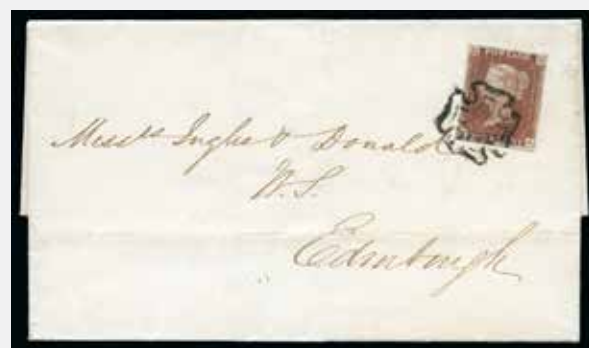 Messrs Inglis & Donald
W.S.
Edinburgh